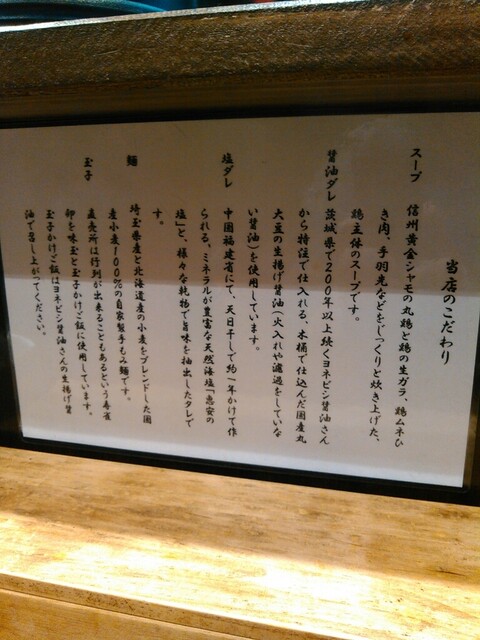 当店のこだわり
スープ 信州黄金シャモの丸鶏と鶏の生ガラ、鶏ムネひ
き肉、手羽先などをじっくりと炊き上げた、
鶏主体のスープです。
醤油ダレ 茨城県で200年以上続くヨネビシ醤油さん
から特注で仕入れる、木桶で仕込んだ国産丸
大豆の生揚げ醤油(火入れや濾過をしていな
い醤油)を使用しています。
塩ダレ 中国福建省にて、天日干しで約一年かけて作
られる、ミネラルが豊富な天然海塩「恵安の
塩」と、様々な乾物で旨味を抽出したタレで
す。
麺 埼玉県産と北海道産の小麦をブレンドした国
産小麦100%の自家製手もみ麺です。
玉子 直売所は行列が出来ることもあるという寿雀
卵を味玉と玉子かけご飯に使用しています。
玉子かけご飯はヨネビシ醤油さんの生揚げ醤
油で召し上がってください。